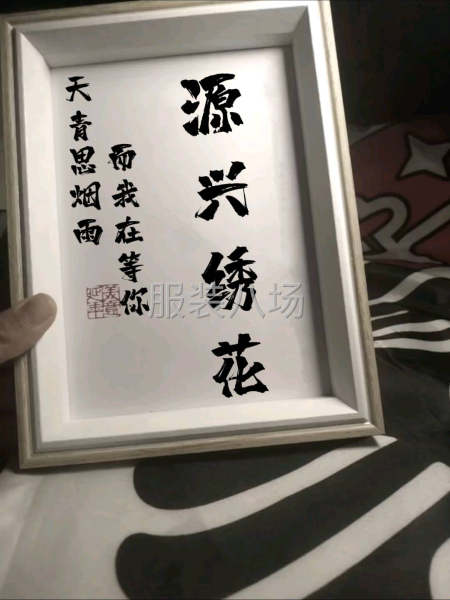 源兴绣花
天青思烟雨
而我在等你
服装八场